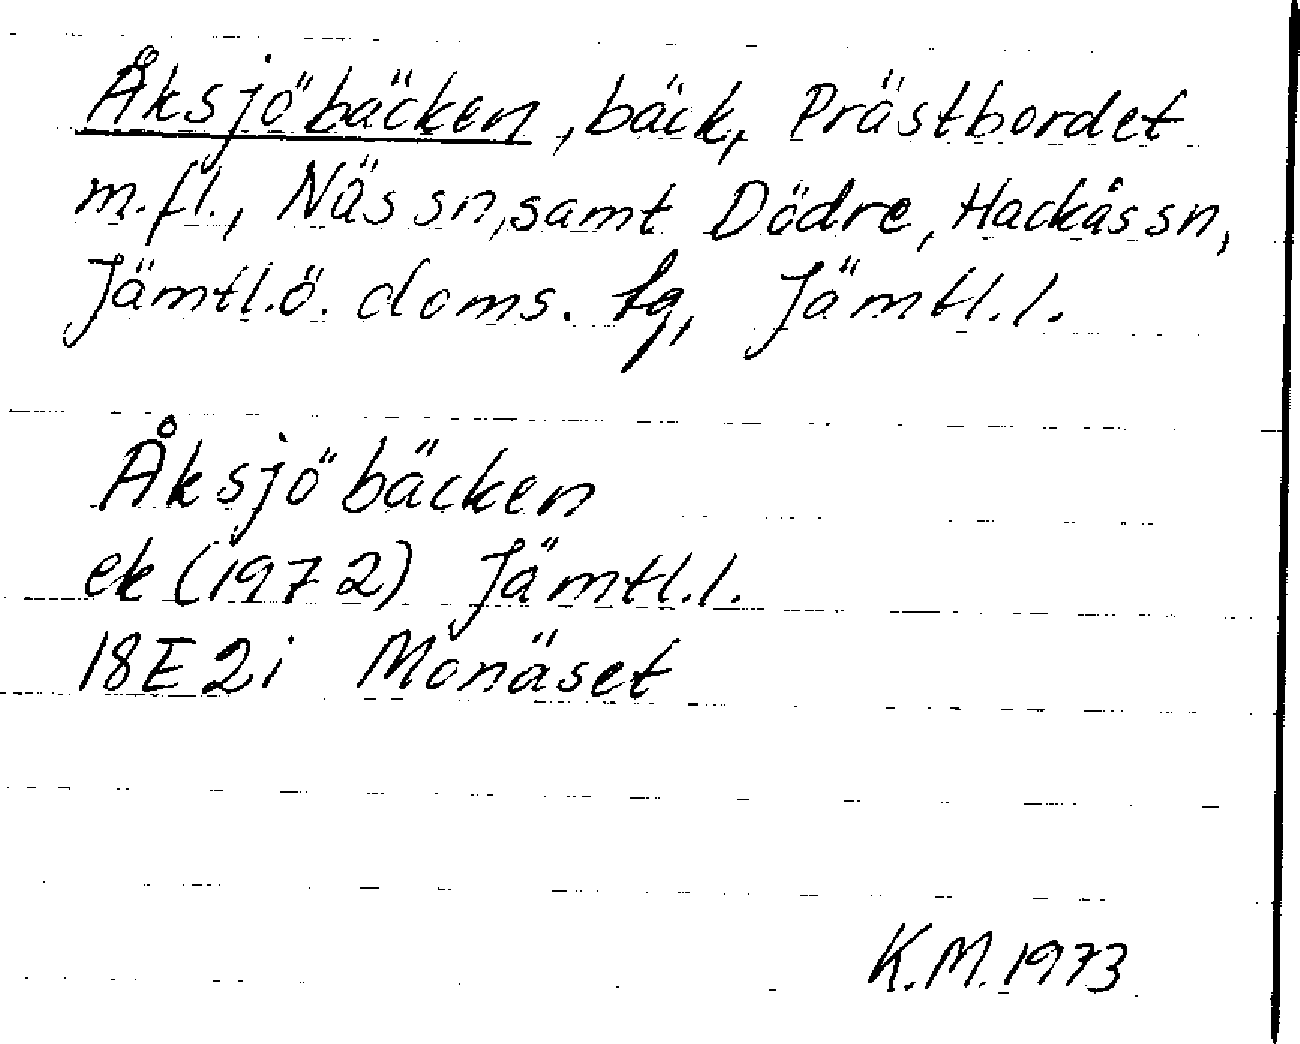 Åksjöbäcken, bäck, Prästbordet
m.fl., Näs sn, samt Dödre, Hackås sn,
Jämtl.ö. doms. tg, Jämtl.l.
Åksjöbäcken
ek (1972) Jämtl.l.
18E2i Monäset
K.M. 1973